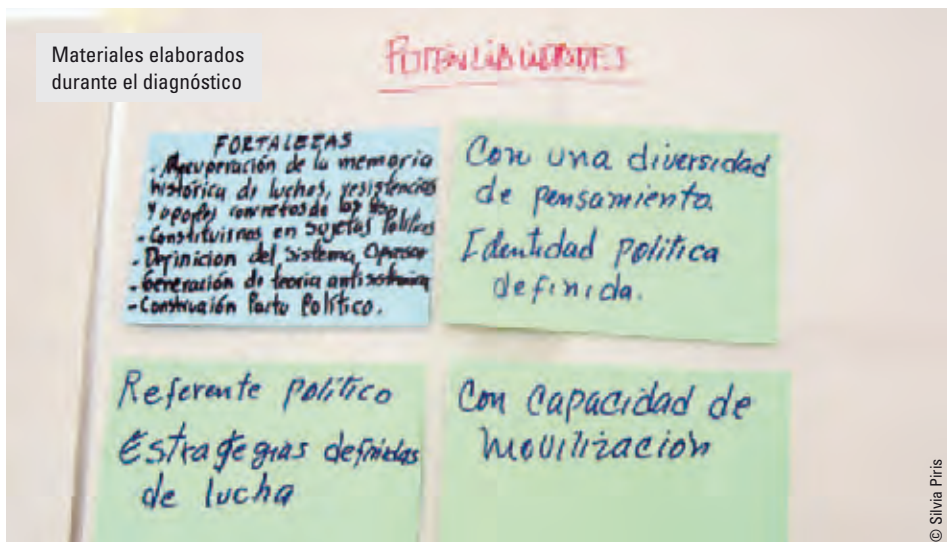 Materiales elaborados
durante el diagnóstico
POTENCIALIDADES
FORTALEZAS
- Recuperación de la memoria
histórica de luchas, resistencias
y aportes concretos de las
- Constituirnos en sujetas políticas
- Definicion del sistema Opresor
- Generación de teoria antisistémica
- Construcción Pacto Político.
Con una diversidad
de pensamiento.
Identidad politica
definida.
Referente político
Estrategias definidas
de lucha
Con capacidad de
movilización
© Silvia Piris